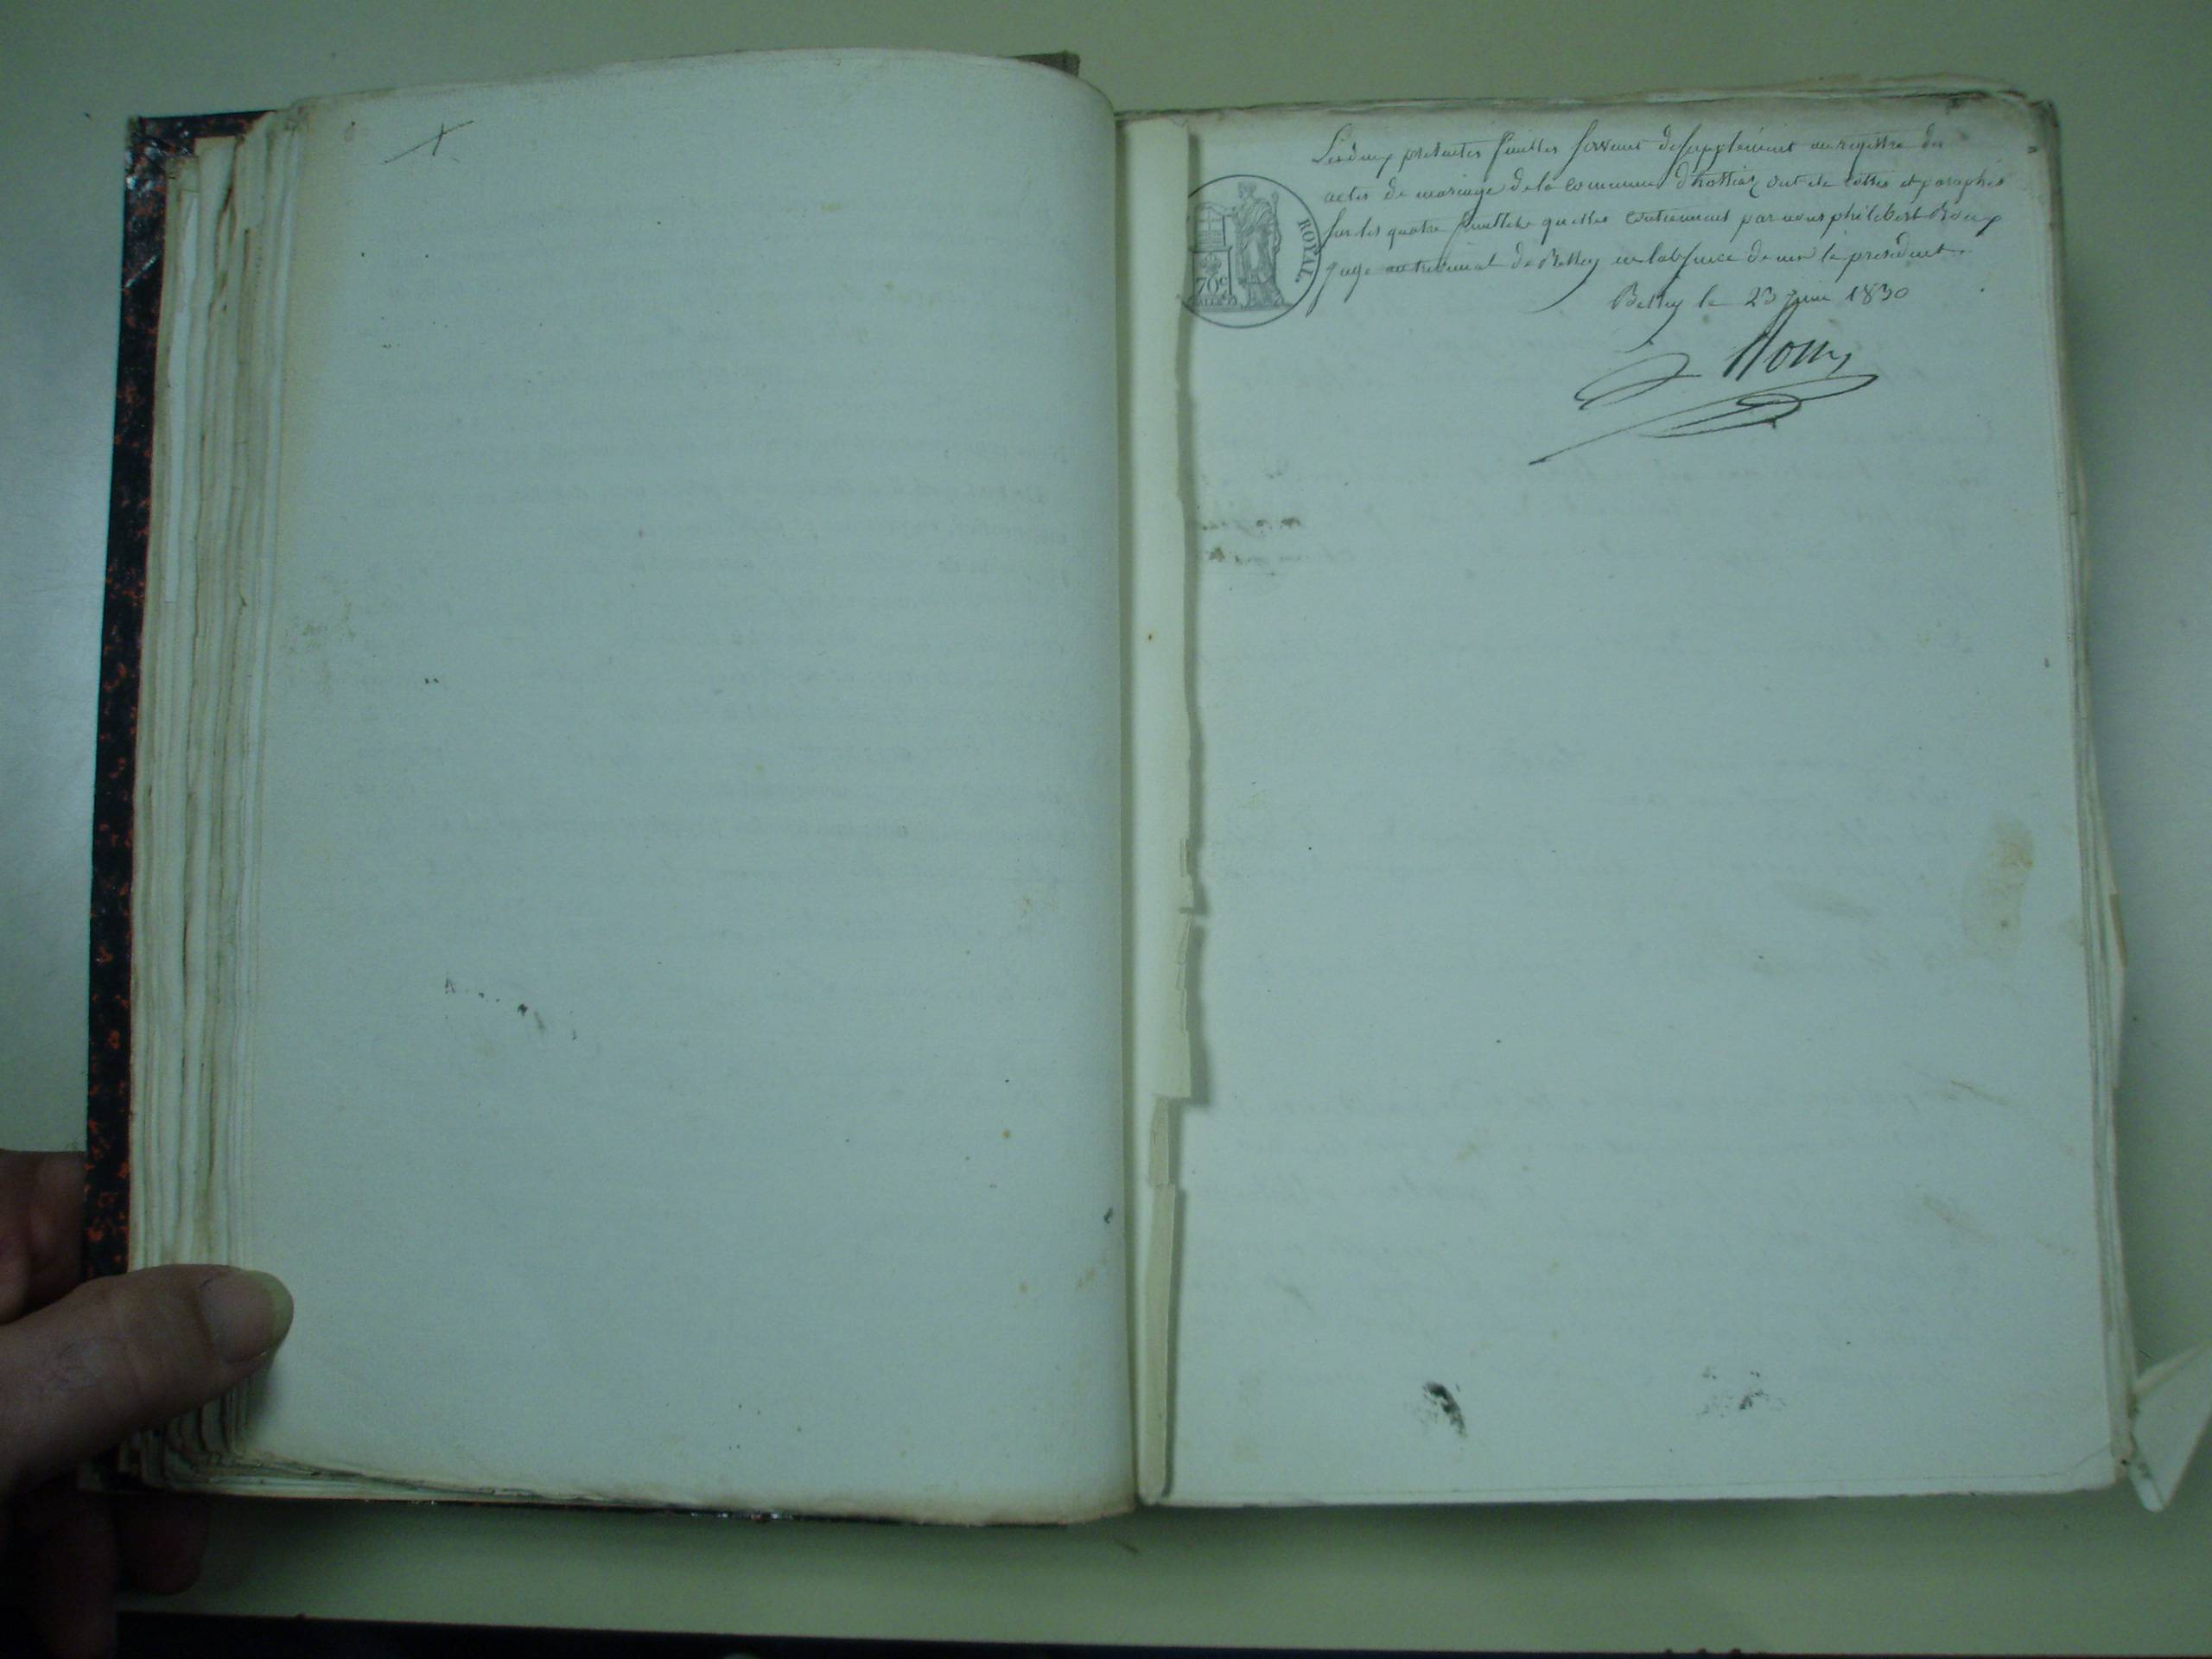 Les deux présentes feuilles servant de supplément au registre des
actes de mariage de la commune d'hostiaz ont été cottés et paraphés
sur les quatre feuillets qu'elles contiennent par nous philibert Roux
juge au tribunal de Belley en l'absence de mr le president.
Belley le 23 juin 1830
Roux
ROYAL.
70c